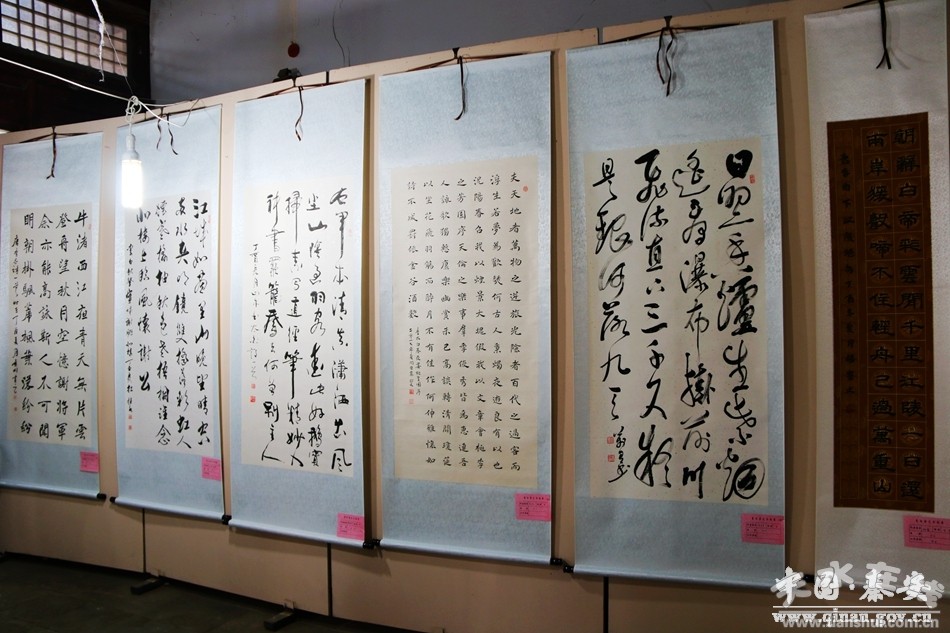 牛渚西江夜青天無片雲
登舟望秋月空憶謝將軍
余亦能高詠斯人不可聞
明朝掛帆席楓葉落紛紛
江城如畫裏山晚望晴空
兩水夾明鏡雙橋落彩虹人
煙寒橘柚秋色老梧桐誰念
北樓上臨風懷謝公
右軍本清真瀟洒出風
塵山陰遇羽客愛此好鵝賓
掃素寫道經筆精妙入
神書罷籠鵝去何曾別主人
夫天地者萬物之逆旅光陰者百代之過客而
浮生若夢為歡幾何古人秉燭夜遊良有以也
況陽春召我以煙景大塊假我以文章會桃李
之芳園序天倫之樂事群季俊秀皆為惠連吾
人詠歌獨慚康樂幽賞未已高談轉清開瓊筵
以坐花飛羽觴而醉月不有佳作何伸雅懷如
詩不成罰依金谷酒數
日照香爐生紫煙
遙看瀑布掛前川
飛流直下三千尺疑
是銀河落九天
朝辭白帝彩雲間千里江陵一日還
兩岸猿聲啼不住輕舟已過萬重山
中国·秦安
www.qinan.gov.cn
www.tianshui.com.cn